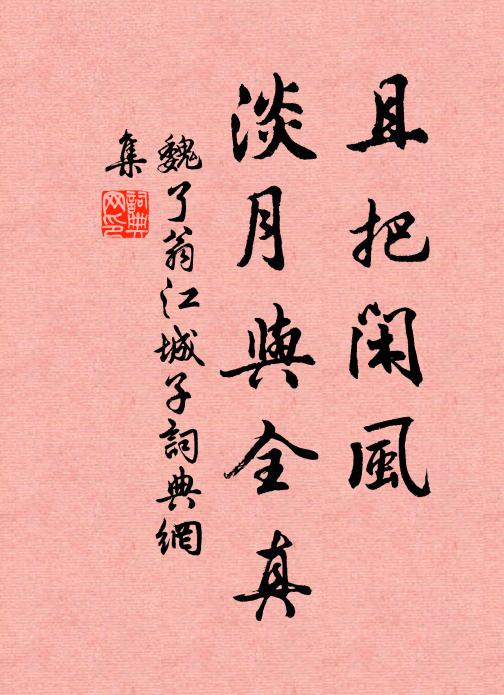 且把閑風
淡月與全真
魏了翁江城子詞典網
集
詞典网印